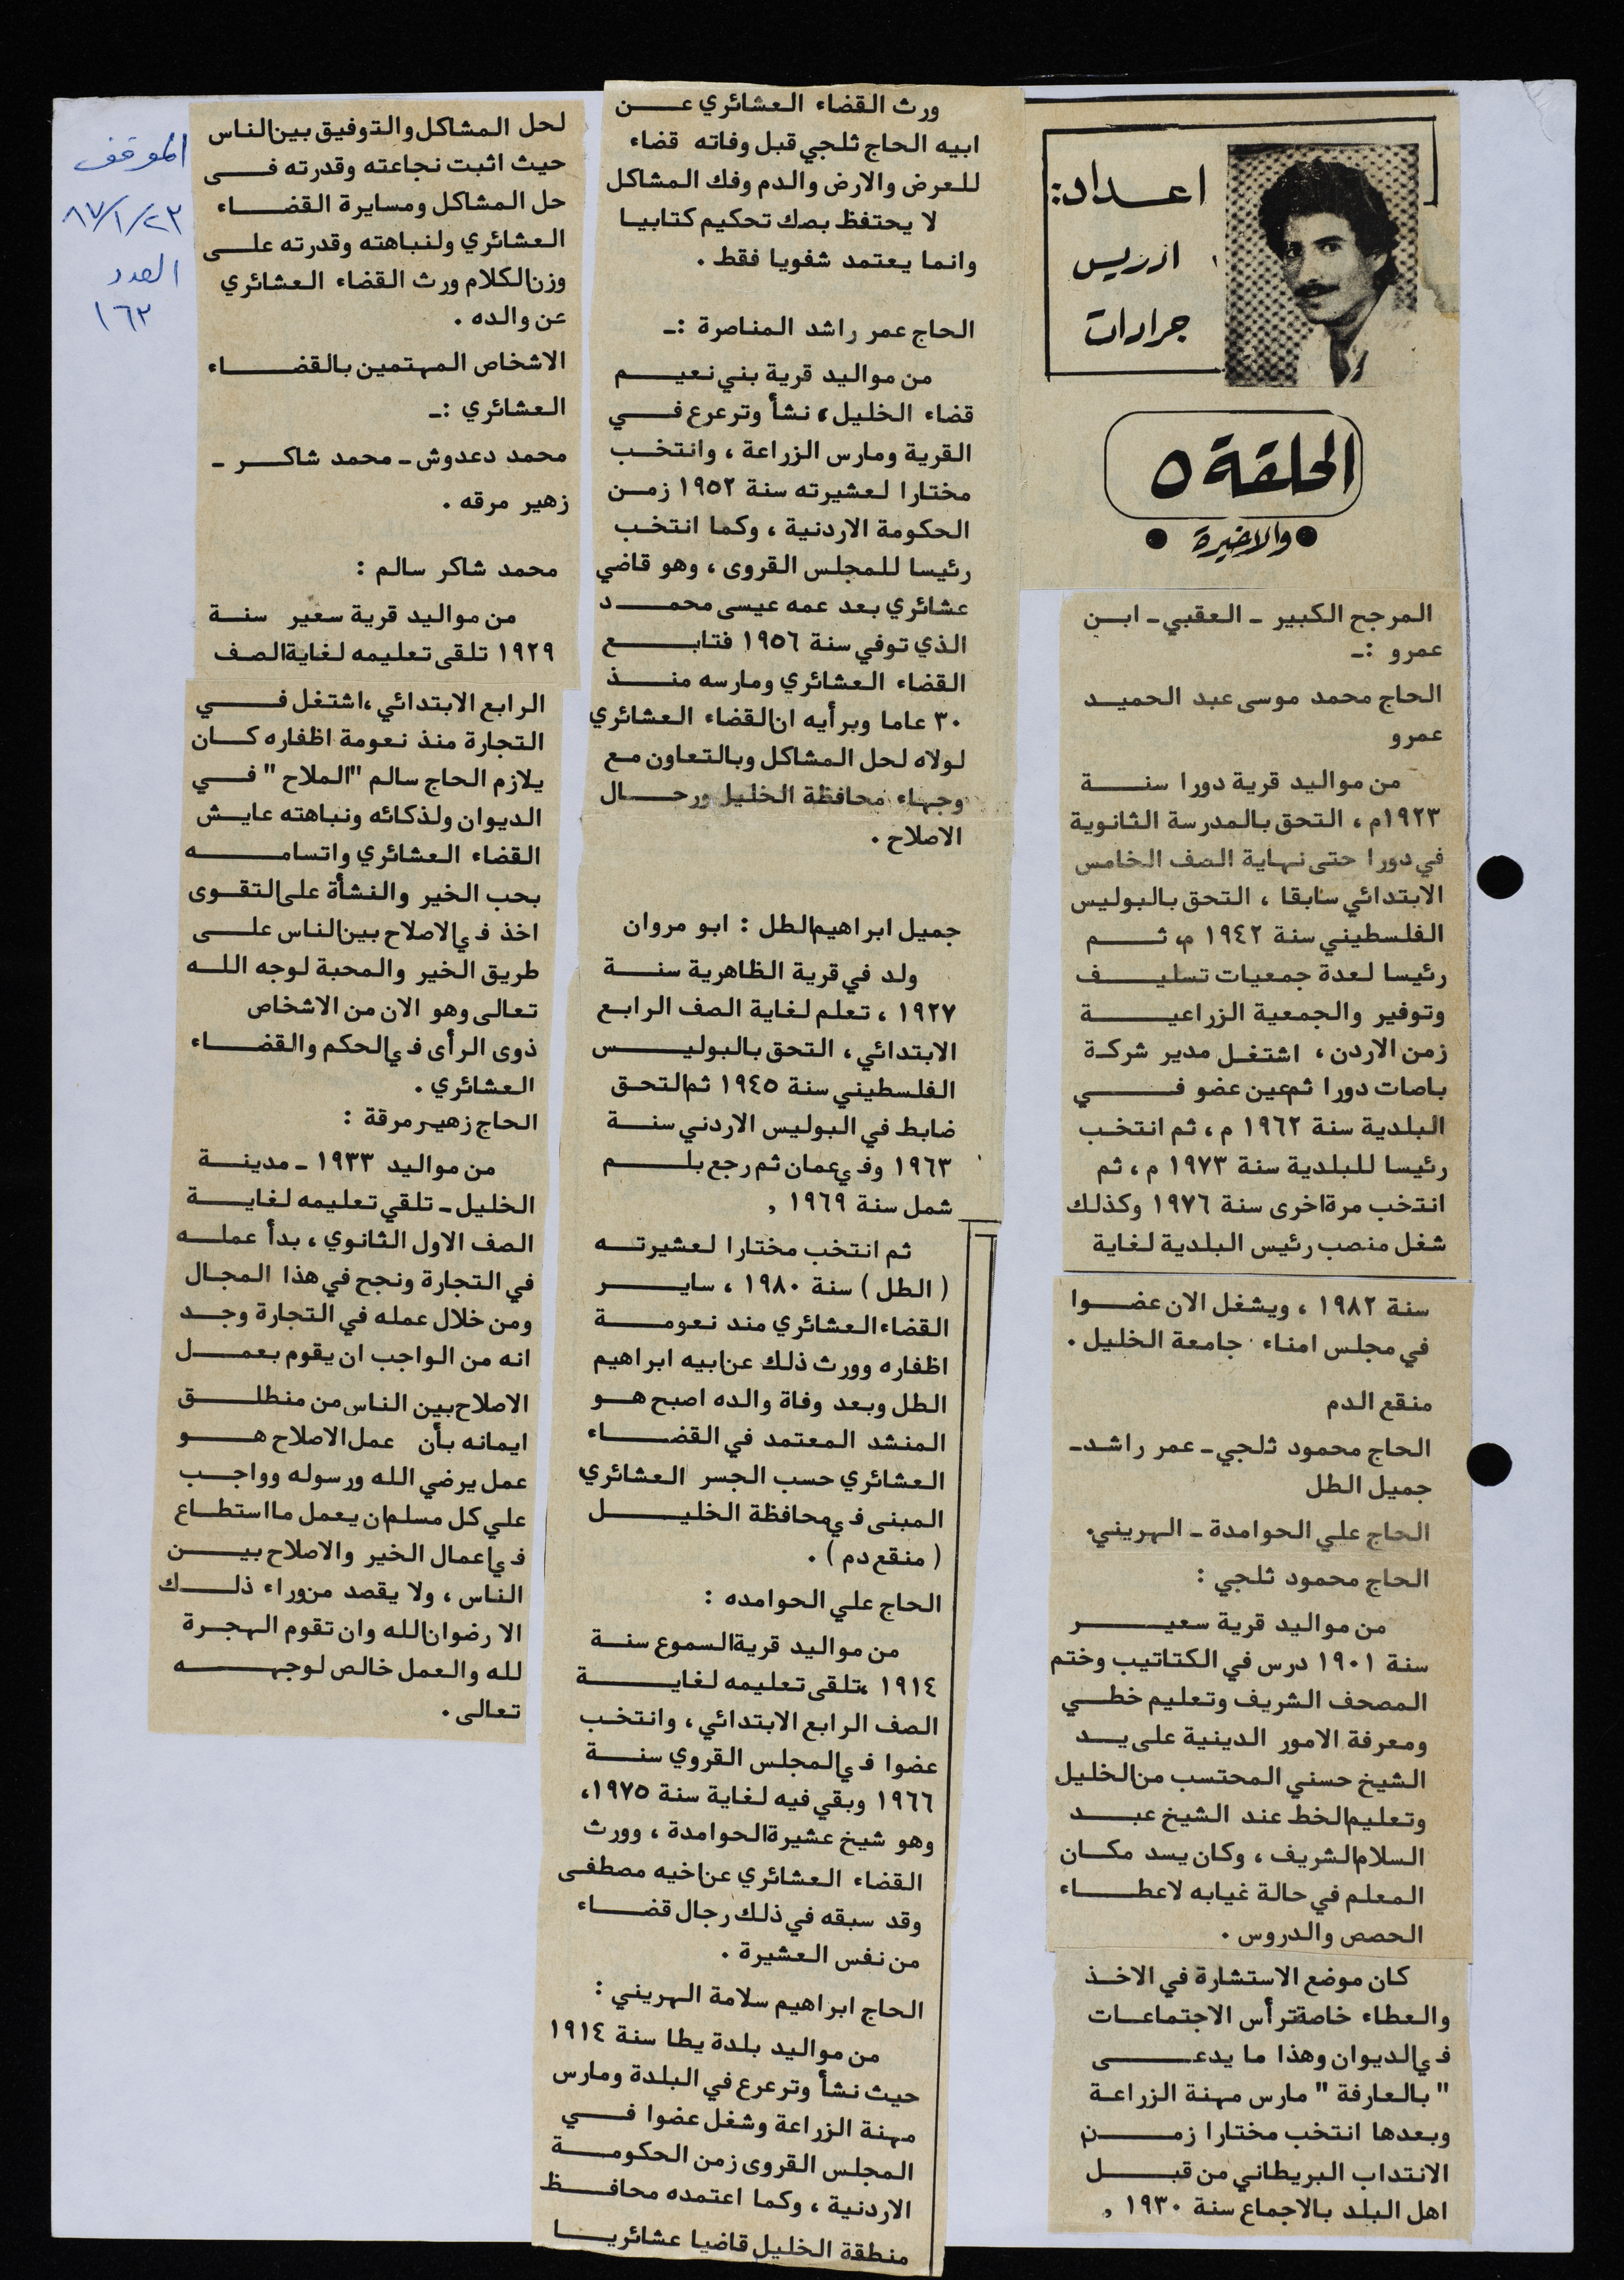 اعداد:
ادريس
جرادات
الحلقة ٥
● والاخيرة ●
المرجح الكبير ـ العقبي ـ ابن
عمرو :ـ
الحاج محمد موسى عبد الحميد
عمرو
من مواليد قرية دورا سنة
١٩٢٣م ، التحق بالمدرسة الثانوية
في دورا حتى نهاية الصف الخامس
الابتدائي سابقا ، التحق بالبوليس
الفلسطيني سنة ١٩٤٢ م، ثم
رئيسا لعدة جمعيات تسليف
وتوفير والجمعية الزراعية
زمن الاردن ، اشتغل مدير شركة
باصات دورا ثم عين عضو في
البلدية سنة ١٩٦٢ م ، ثم انتخب
رئيسا للبلدية سنة ١٩٧٣ م ، ثم
انتخب مرة اخرى سنة ١٩٧٦ وكذلك
شغل منصب رئيس البلدية لغاية
سنة ١٩٨٢ ، ويشغل الان عضوا
في مجلس امناء جامعة الخليل .
منقع الدم
الحاج محمود ثلجي ـ عمر راشد ـ
جميل الطل
الحاج علي الحوامدة ـ الهريني.
الحاج محمود ثلجي :
من مواليد قرية سعير
سنة ١٩٠١ درس في الكتاتيب وختم
المصحف الشريف وتعليم خطي
ومعرفة الامور الدينية على يد
الشيخ حسني المحتسب من الخليل
وتعليم الخط عند الشيخ عبد
السلام الشريف ، وكان يسد مكان
المعلم في حالة غيابه لاعطاء
الحصص والدروس .
كان موضع الاستشارة في الاخذ
والعطاء خاصة ترأس الاجتماعات
في الديوان وهذا ما يدعى
" بالعارفة " مارس مهنة الزراعة
وبعدها انتخب مختارا زمن
الانتداب البريطاني من قبل
اهل البلد بالاجماع سنة ١٩٣٠ ,
ورث القضاء العشائري عن
ابيه الحاج ثلجي قبل وفاته قضاء
للعرض والارض والدم وفك المشاكل
لا يحتفظ بصك تحكيم كتابيا
وانما يعتمد شفويا فقط .
الحاج عمر راشد المناصرة :ـ
من مواليد قرية بني نعيم
قضاء الخليل ، نشأ وترعرع في
القرية ومارس الزراعة ، وانتخب
مختارا لعشيرته سنة ١٩٥٢ زمن
الحكومة الاردنية ، وكما انتخب
رئيسا للمجلس القروى ، وهو قاضي
عشائري بعد عمه عيسى محمد
الذي توفي سنة ١٩٥٦ فتابع
القضاء العشائري ومارسه منذ
٣٠ عاما وبرأيه ان القضاء العشائري
لولاه لحل المشاكل وبالتعاون مع
وجهاء محافظة الخليل ورجال
الاصلاح .
جميل ابراهيم الطل : ابو مروان
ولد في قرية الظاهرية سنة
١٩٢٧ ، تعلم لغاية الصف الرابع
الابتدائي ، التحق بالبوليس
الفلسطيني سنة ١٩٤٥ ثم التحق
ضابط في البوليس الاردني سنة
١٩٦٣ وفي عمان ثم رجع بلم
شمل سنة ١٩٦٩ ,
ثم انتخب مختارا لعشيرته
( الطل ) سنة ١٩٨٠ ، ساير
القضاء العشائري مند نعومة
اظفاره وورث ذلك عن ابيه ابراهيم
الطل وبعد وفاة والده اصبح هو
المنشد المعتمد في القضاء
العشائري حسب الجسر العشائري
المبنى في محافظة الخليل
( منقع دم ) .
الحاج علي الحوامده :
من مواليد قرية السموع سنة
١٩١٤ ،تلقى تعليمه لغاية
الصف الرابع الابتدائي ، وانتخب
عضوا في المجلس القروي سنة
١٩٦٦ وبقي فيه لغاية سنة ١٩٧٥،
وهو شيخ عشيرة الحوامدة ، وورث
القضاء العشائري عن اخيه مصطفى
وقد سبقه في ذلك رجال قضاء
من نفس العشيرة .
الحاج ابراهيم سلامة الهريني :
من مواليد بلدة يطا سنة ١٩١٤
حيث نشأ وترعرع في البلدة ومارس
مهنة الزراعة وشغل عضوا في
المجلس القروى زمن الحكومة
الاردنية ، وكما اعتمده محافظ
منطقة الخليل قاضيا عشائريا
لحل المشاكل والتوفيق بين الناس
حيث اثبت نجاعته وقدرته فى
حل المشاكل ومسايرة القضاء
العشائري ولنباهته وقدرته على
وزن الكلام ورث القضاء العشائري
عن والده .
الاشخاص المهتمين بالقضاء
العشائري :ـ
محمد دعدوش ـ محمد شاكر ـ
زهير مرقه .
محمد شاكر سالم :
من مواليد قرية سعير سنة
١٩٢٩ تلقى تعليمه لغاية الصف
الرابع الابتدائي ،اشتغل في
التجارة منذ نعومة اظفاره كان
يلازم الحاج سالم "الملاح" في
الديوان ولذكائه ونباهته عايش
القضاء العشائري واتسامه
بحب الخير والنشأة على التقوى
اخذ في الاصلاح بين الناس على
طريق الخير والمحبة لوجه الله
تعالى وهو الان من الاشخاص
ذوى الرأى في الحكم والقضاء
العشائري .
الحاج زهير مرقة :
من مواليد ١٩٣٣ ـ مدينة
الخليل ـ تلقي تعليمه لغاية
الصف الاول الثانوي ، بدأ عمله
في التجارة ونجح في هذا المجال
ومن خلال عمله في التجارة وجد
انه من الواجب ان يقوم بعمل
الاصلاح بين الناس من منطلق
ايمانه بأن عمل الاصلاح هو
عمل يرضي الله ورسوله وواجب
علي كل مسلم ان يعمل ما استطاع
في اعمال الخير والاصلاح بين
الناس ، ولا يقصد من وراء ذلك
الا رضوان الله وان تقوم الهجرة
لله والعمل خالص لوجهه
تعالى .
الموقف
٨٧/١/٢٣
العدد
١٦٢